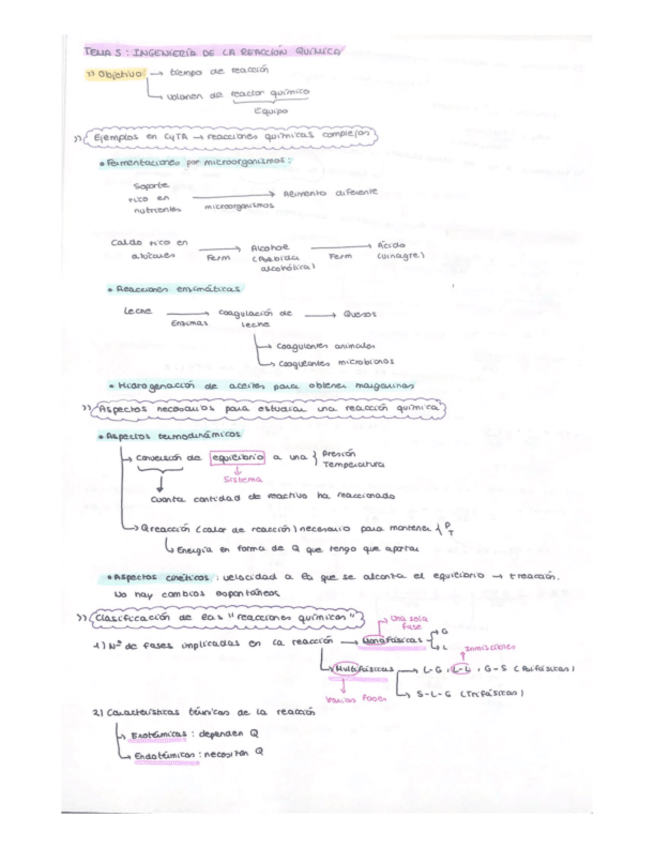 TEMA 5: INGENIERÍA DE LA REACCIÓN QUÍMICA
>> Objetivo → tiempo de reacción
→ volumen de reactor químico
Equipo
>> Ejemplos en CyTA → reacciones químicas complejas
• Fermentaciones por microorganismos:
Soporte rico en nutrientes → microorganismos → Alimento diferente
Caldo rico en azúcares → Ferm → Alcohol (Bebida alcohólica) → Ferm → Ácido (vinagre)
• Reacciones enzimáticas
Leche → Enzimas → coagulación de leche → Quesos
→ coagulantes animales
→ coagulantes microbianos
• Hidrogenación de aceites para obtener margarinas
>> Aspectos necesarios para estudiar una reacción química
• Aspectos termodinámicos
→ Conversión de equilibrio a una { Presión Temperatura
Sistema
Cuanta cantidad de reactivo ha reaccionado
→ Q reacción (calor de reacción) necesario para mantener { P T
→ Energía en forma de Q que tengo que aportar
• Aspectos cinéticos: velocidad a la que se alcanza el equilibrio → t reacción.
No hay cambios espontáneos
>> Clasificación de las "reacciones químicas"
Una sola fase
1) Nº de fases implicadas en la reacción → Monofásicas → G
→ L
Inmiscibles
→ Multifásicas → L-G, L-L, G-S (Bifásicas)
Varias fases
→ S-L-G (Trifásicas)
2) Características térmicas de la reacción
→ Exotérmicas: dependen Q
→ Endotérmicas: necesitan Q